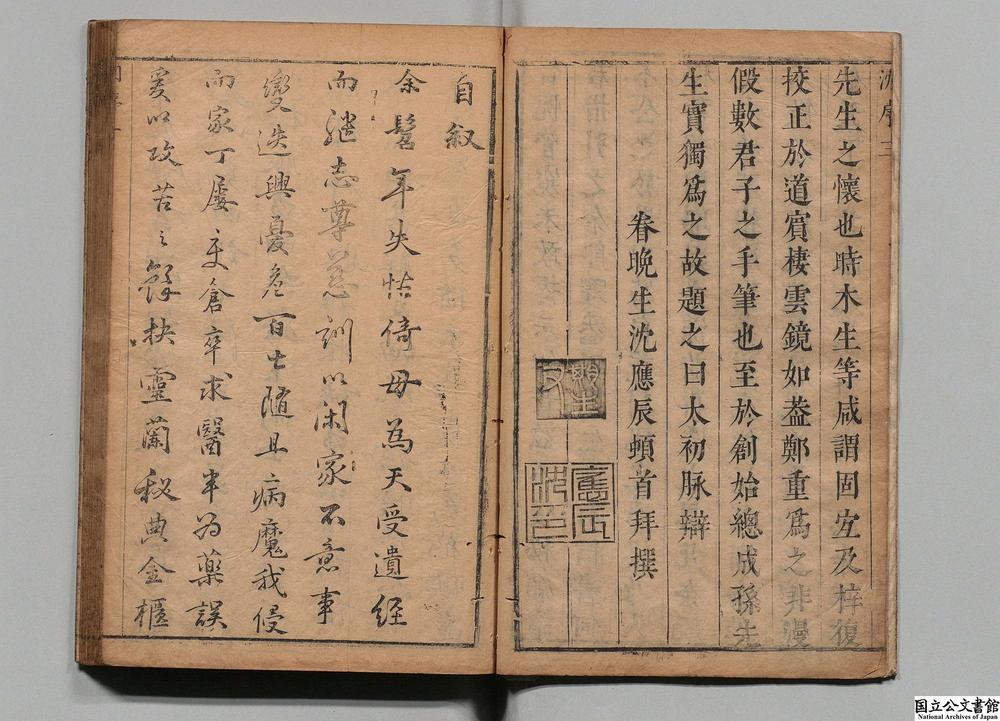 沈序 三
先生之懷也時木生等咸謂固宜及梓復
挍正於道賓棲雲鏡如葢鄭重爲之非漫
假數君子之手筆也至於創始總成孫先
生實獨爲之故題之曰太初脉辯
眷晚生沈應辰頓首拜撰
自叙
余髫年失怙倚母為天受遺經
而継志尊慈訓以闲家不意事
變迭興憂危百出随且病魔我侵
而家丁屡更倉卒求醫半为藥誤
爰以攻苦之餘抉靈蘭秘典金櫃
国立公文書館
National Archives of Japan